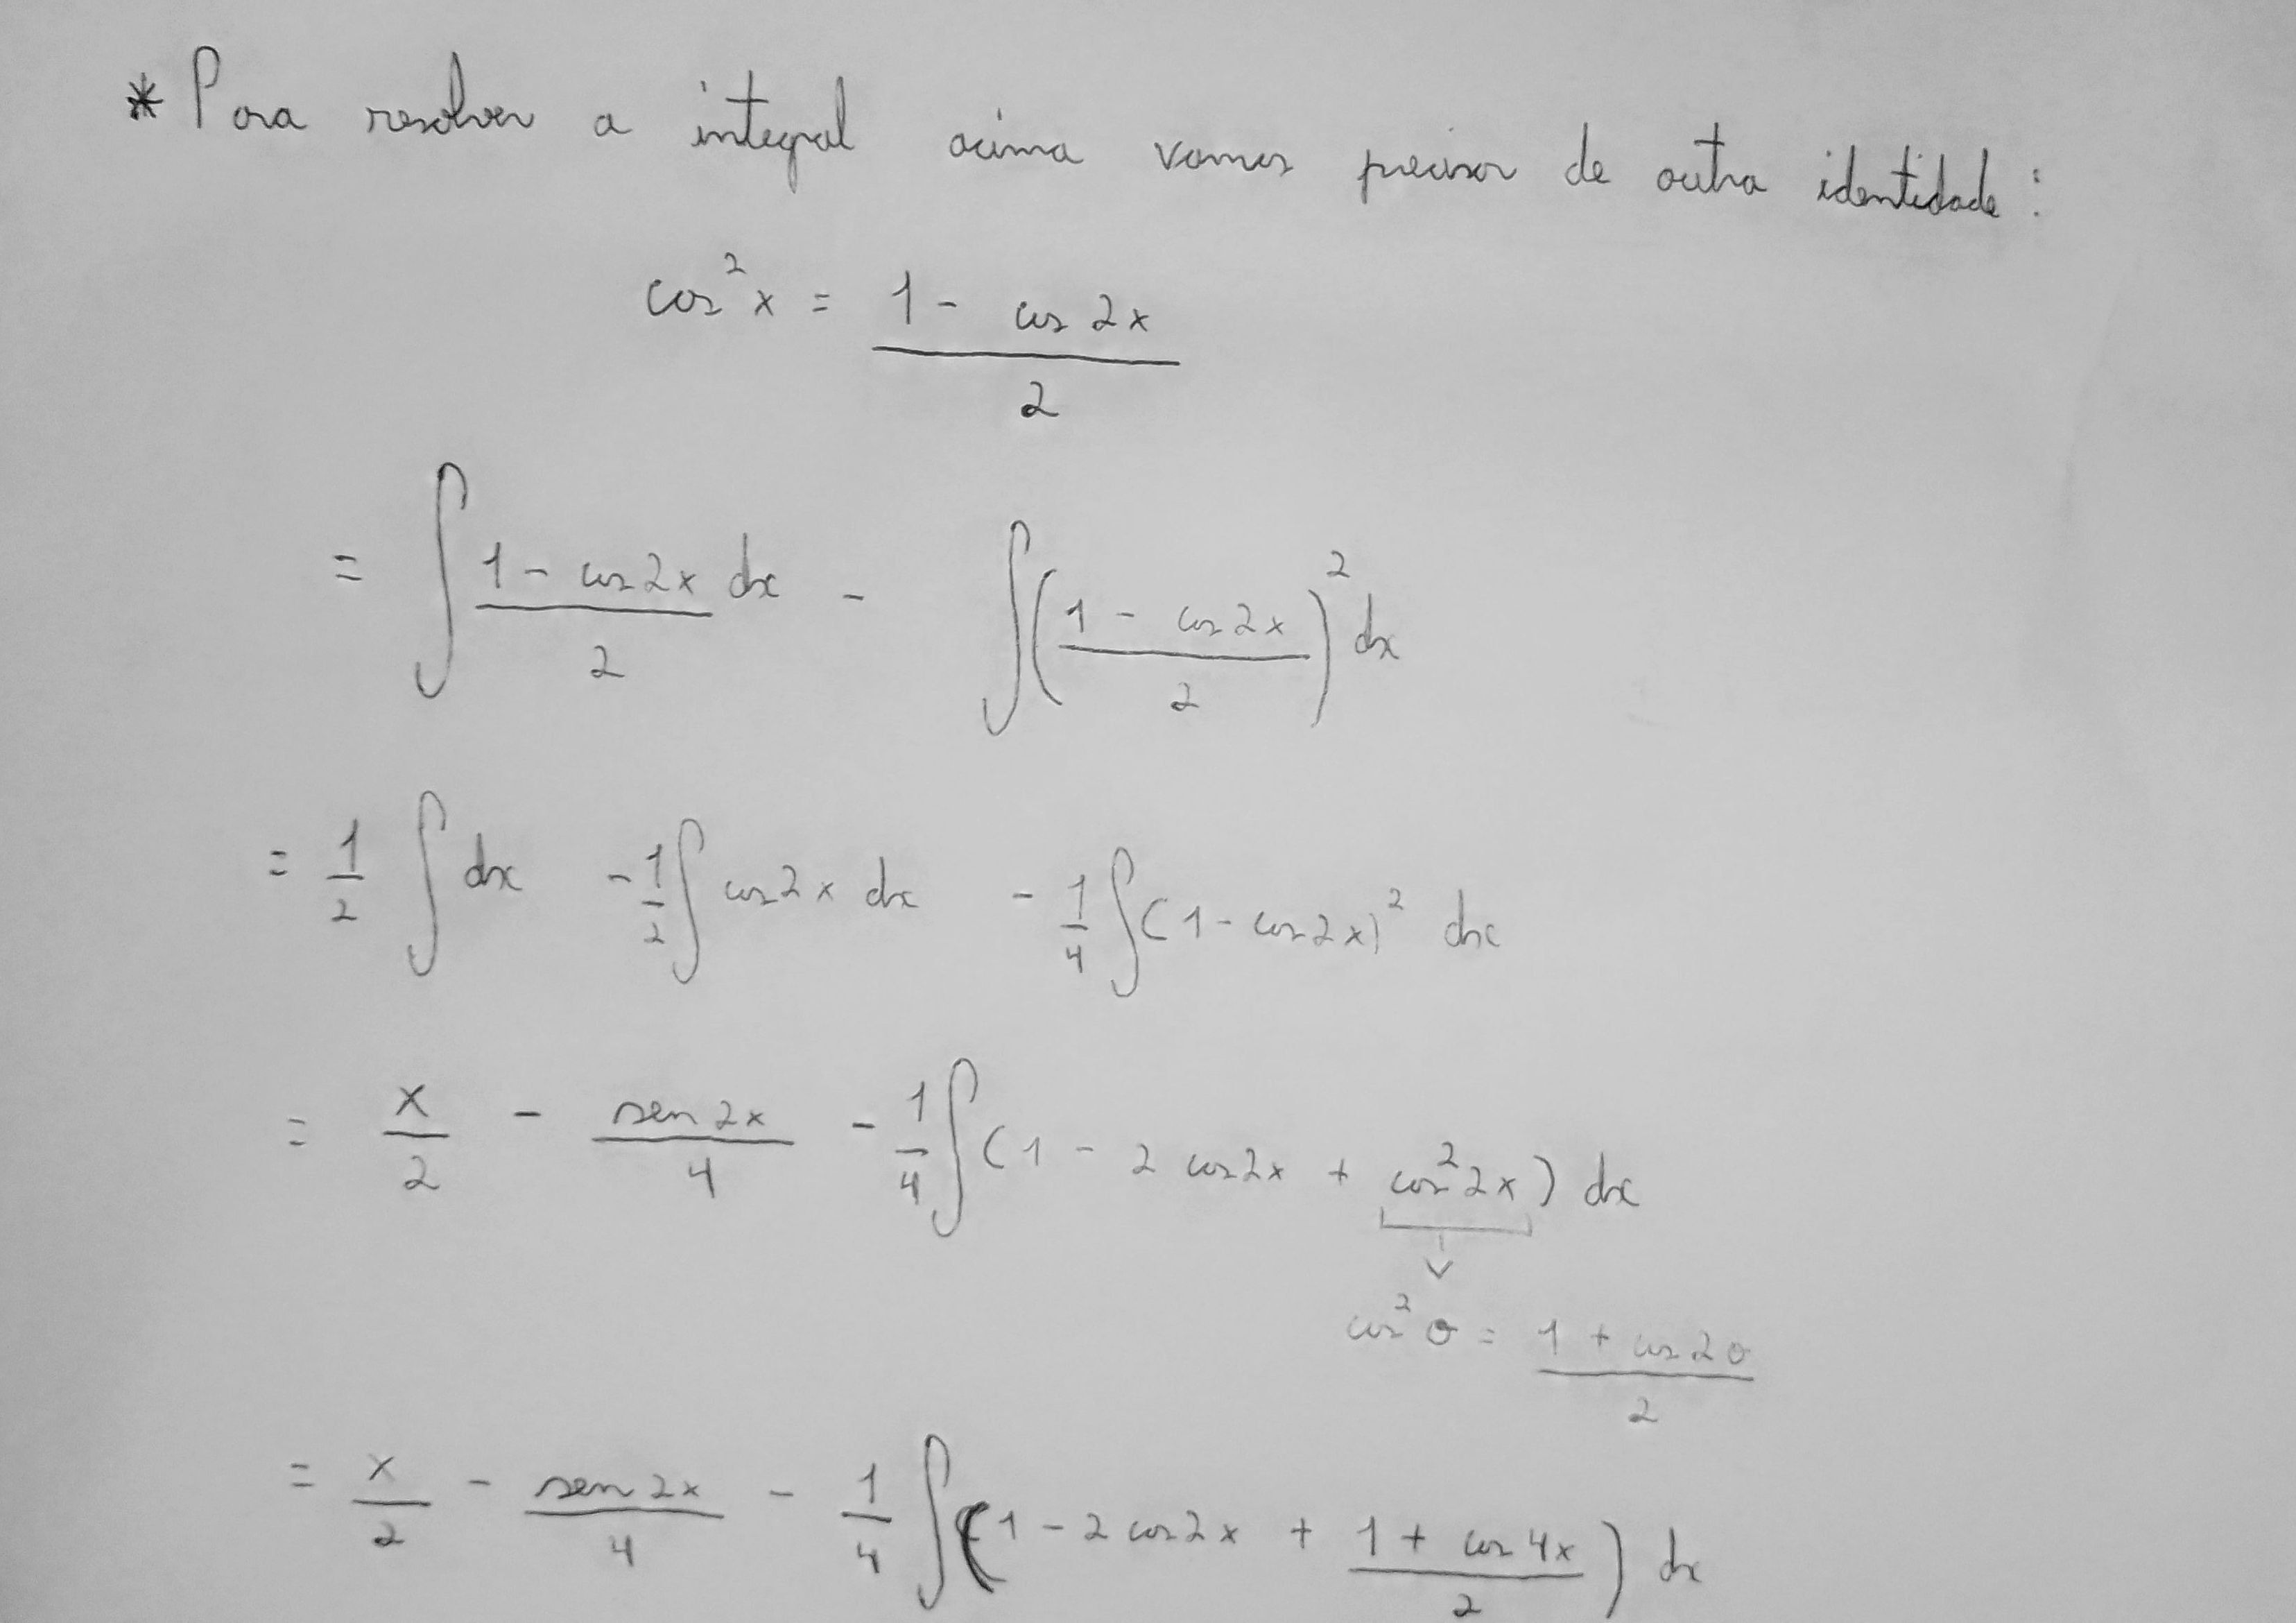 * Para resolver a integral acima vamos precisar de outra identidade:
cos²x = (1 - cos 2x)/2
= ∫ (1 - cos 2x)/2 dx - ∫ ((1 - cos 2x)/2)² dx
= 1/2 ∫ dx - 1/2 ∫ cos 2x dx - 1/4 ∫ (1 - cos 2x)² dx
= x/2 - sen 2x/4 - 1/4 ∫ (1 - 2 cos 2x + cos² 2x) dx
cos² θ = (1 + cos 2θ)/2
= x/2 - sen 2x/4 - 1/4 ∫ (1 - 2 cos 2x + (1 + cos 4x)/2) dx